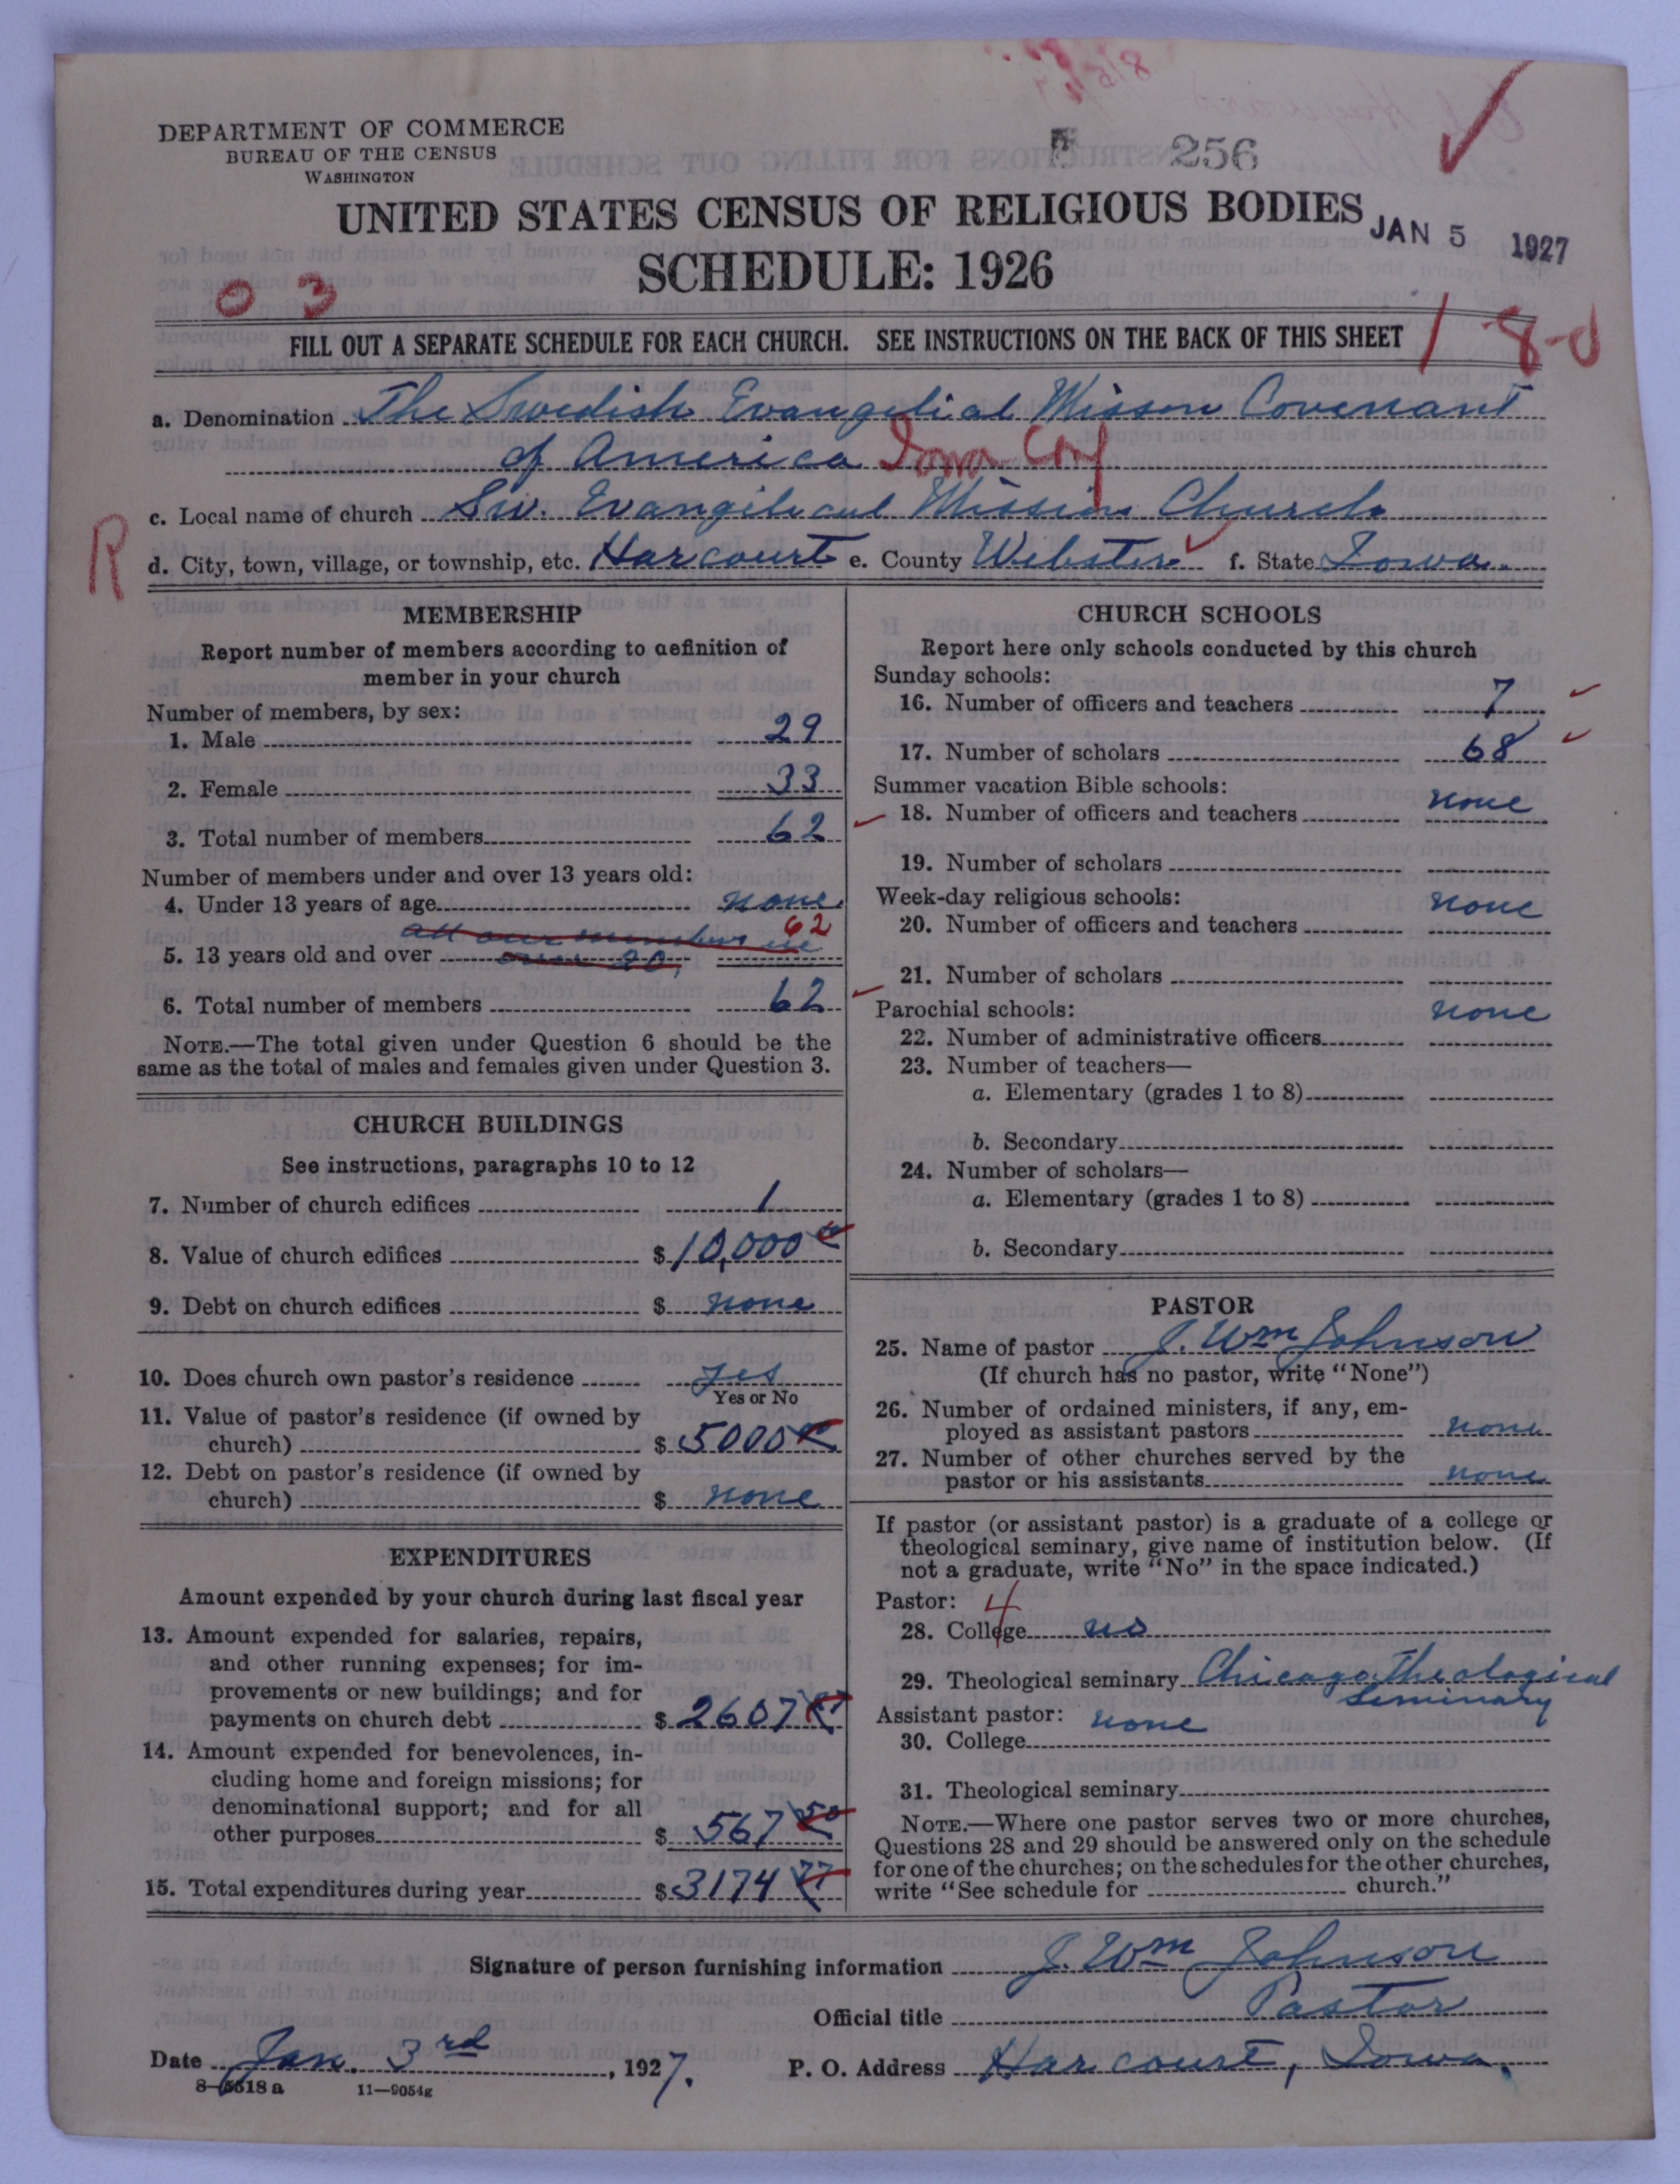 DEPARTMENT OF COMMERCE
BUREAU OF THE CENSUS
WASHINGTON
256
UNITED STATES CENSUS OF RELIGIOUS BODIES
JAN 5 1927
SCHEDULE: 1926
0 3
FILL OUT A SEPARATE SCHEDULE FOR EACH CHURCH. SEE INSTRUCTIONS ON THE BACK OF THIS SHEET
1 8-d
a. Denomination The Swedish Evangelical Misson Covenant
of America Iowa Conf
c. Local name of church Sw. Evangelical Mission Church
R
d. City, town, village, or township, etc. Harcourt e. County Webster f. State Iowa.
MEMBERSHIP
Report number of members according to definition of
member in your church
Number of members, by sex:
1. Male 29
2. Female 33
3. Total number of members 62
Number of members under and over 13 years old:
4. Under 13 years of age none.
all our members are 62
5. 13 years old and over over 20,
6. Total number of members 62
NOTE.—The total given under Question 6 should be the
same as the total of males and females given under Question 3.
CHURCH BUILDINGS
See instructions, paragraphs 10 to 12
7. Number of church edifices 1
8. Value of church edifices $ 10,000
9. Debt on church edifices $ none
10. Does church own pastor's residence yes
Yes or No
11. Value of pastor's residence (if owned by
church) $ 5000
12. Debt on pastor's residence (if owned by
church) $ none
EXPENDITURES
Amount expended by your church during last fiscal year
13. Amount expended for salaries, repairs,
and other running expenses; for im-
provements or new buildings; and for
payments on church debt $ 2607
14. Amount expended for benevolences, in-
cluding home and foreign missions; for
denominational support; and for all
other purposes $ 567 50
15. Total expenditures during year $ 3174 77
CHURCH SCHOOLS
Report here only schools conducted by this church
Sunday schools:
16. Number of officers and teachers 7
17. Number of scholars 68
Summer vacation Bible schools:
18. Number of officers and teachers none
19. Number of scholars
Week-day religious schools: none
20. Number of officers and teachers
21. Number of scholars
Parochial schools: none
22. Number of administrative officers
23. Number of teachers—
a. Elementary (grades 1 to 8)
b. Secondary
24. Number of scholars—
a. Elementary (grades 1 to 8)
b. Secondary
PASTOR
25. Name of pastor J. Wm Johnson
(If church has no pastor, write "None")
26. Number of ordained ministers, if any, em-
ployed as assistant pastors none
27. Number of other churches served by the
pastor or his assistants none
If pastor (or assistant pastor) is a graduate of a college or
theological seminary, give name of institution below. (If
not a graduate, write "No" in the space indicated.)
Pastor: 4
28. College no
29. Theological seminary Chicago Theological
Seminary
Assistant pastor: none
30. College
31. Theological seminary
NOTE.—Where one pastor serves two or more churches,
Questions 28 and 29 should be answered only on the schedule
for one of the churches; on the schedules for the other churches,
write "See schedule for church."
Signature of person furnishing information J. Wm Johnson
Official title Pastor
Date Jan. 3rd, 1927. P. O. Address Harcourt, Iowa.
8—5518 a 11—9054g